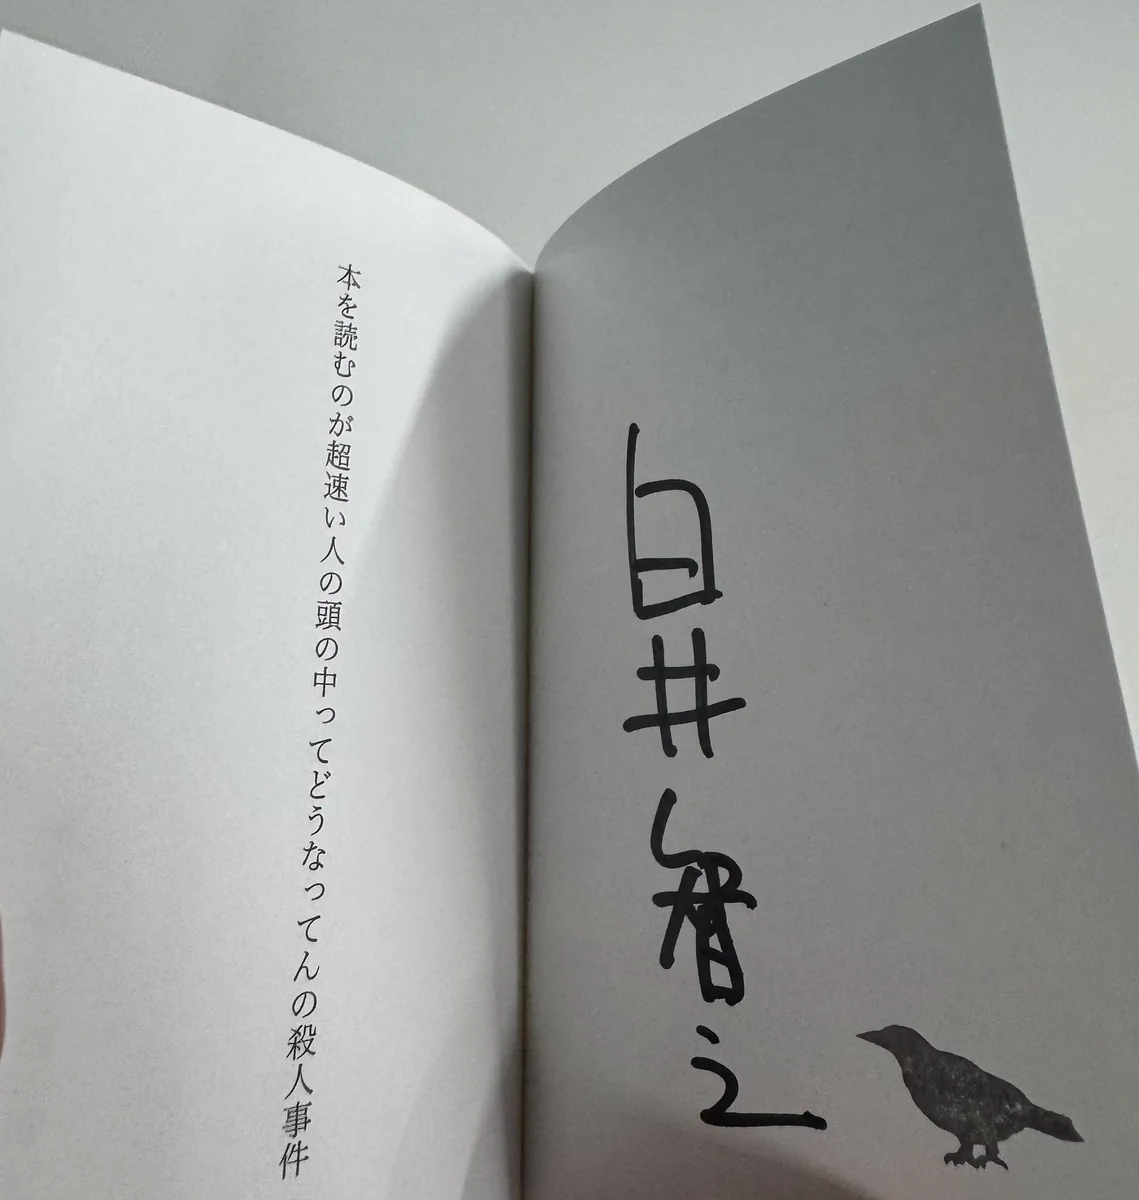 白井智之
本を読むのが超速い人の頭の中ってどうなってんの殺人事件